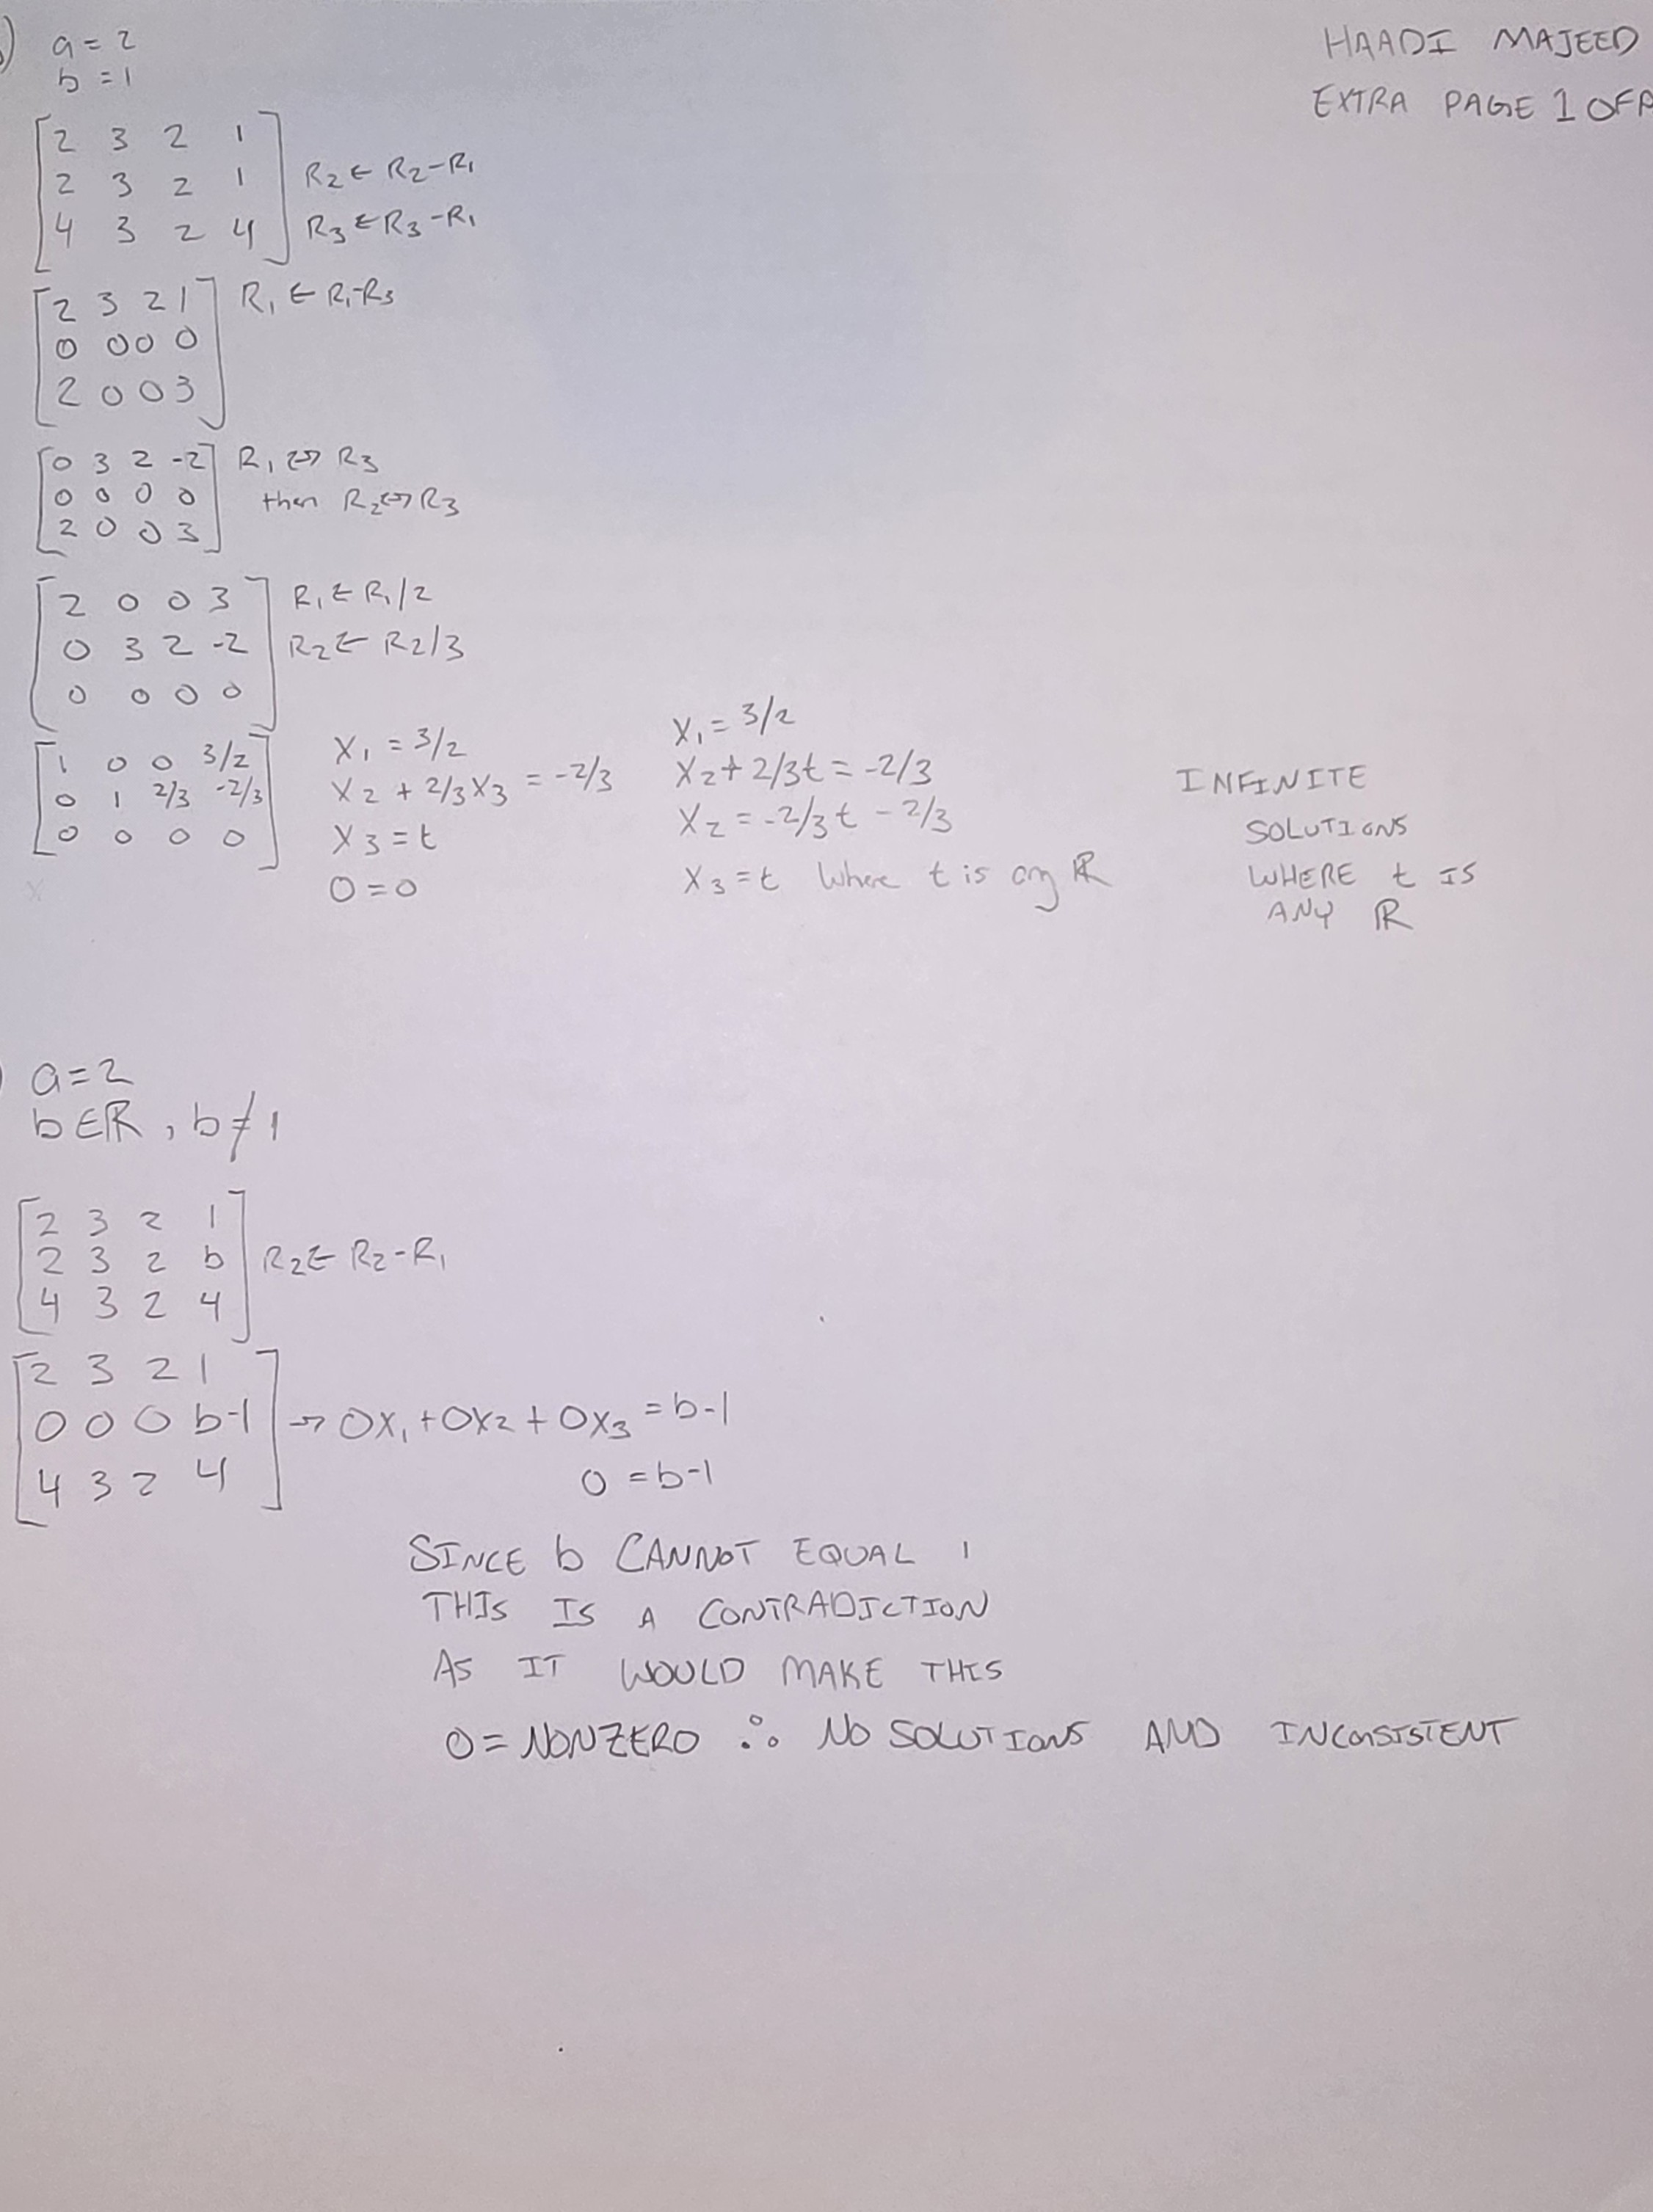 ) a = 2
b = 1
HAADI MAJEED
EXTRA PAGE 1 OF
[2 3 2 1
2 3 2 1
4 3 2 4]
R2 ← R2-R1
R3 ← R3-R1
[2 3 2 1
0 0 0 0
2 0 0 3]
R1 ← R1-R3
[0 3 2 -2
0 0 0 0
2 0 0 3]
R1 ↔ R3
then R2 ↔ R3
[2 0 0 3
0 3 2 -2
0 0 0 0]
R1 ← R1/2
R2 ← R2/3
[1 0 0 3/2
0 1 2/3 -2/3
0 0 0 0]
X1 = 3/2
X2 + 2/3X3 = -2/3
X3 = t
0 = 0
X1 = 3/2
X2 + 2/3t = -2/3
X2 = -2/3t - 2/3
X3 = t Where t is any ℝ
INFINITE
SOLUTIONS
WHERE t IS
ANY ℝ
) a = 2
b ∈ ℝ, b ≠ 1
[2 3 2 1
2 3 2 b
4 3 2 4]
R2 ← R2-R1
[2 3 2 1
0 0 0 b-1
4 3 2 4]
→ 0X1 + 0X2 + 0X3 = b-1
0 = b-1
SINCE b CANNOT EQUAL 1
THIS IS A CONTRADICTION
AS IT WOULD MAKE THIS
0 = NONZERO ∴ NO SOLUTIONS AND INCONSISTENT